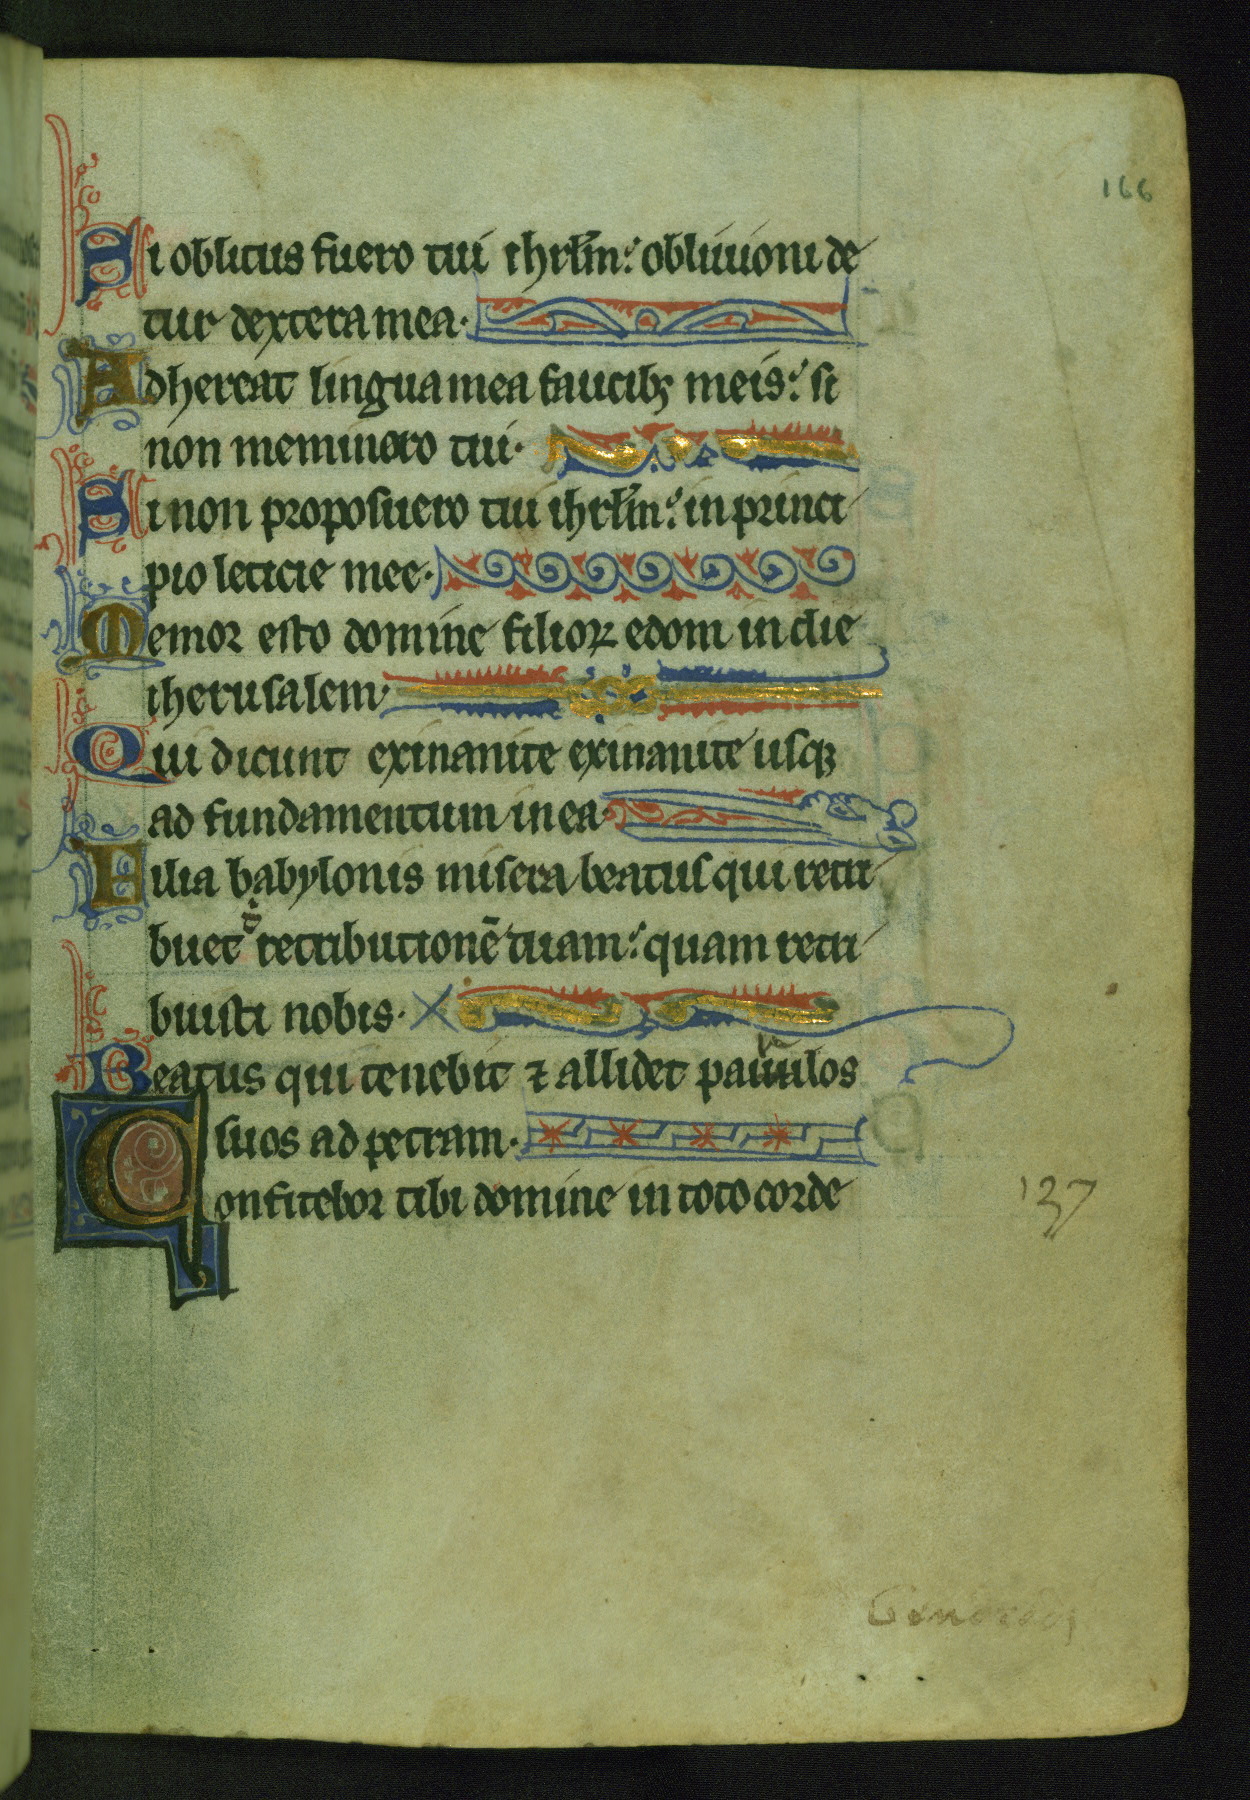 166
Si oblitus fuero tui ihrl̄m: obliuioni de
tur dextera mea.
Adhereat lingua mea faucibꝫ meis: si
non meminero tui.
Si non proposuero tui ihrl̄m: in princi
pio leticie mee.
Memor esto domine filioꝝ edom in die
iherusalem.
Qui dicunt exinanite exinanite usqꝫ
ad fundamentum in ea.
Filia babylonis misera beatus qui retri
buet t̾ retributionē tuam: quam retri
buisti nobis.
Beatus qui tenebit ⁊ allidet paruulos
suos ad petram.
Confitebor tibi domine in toto corde
137